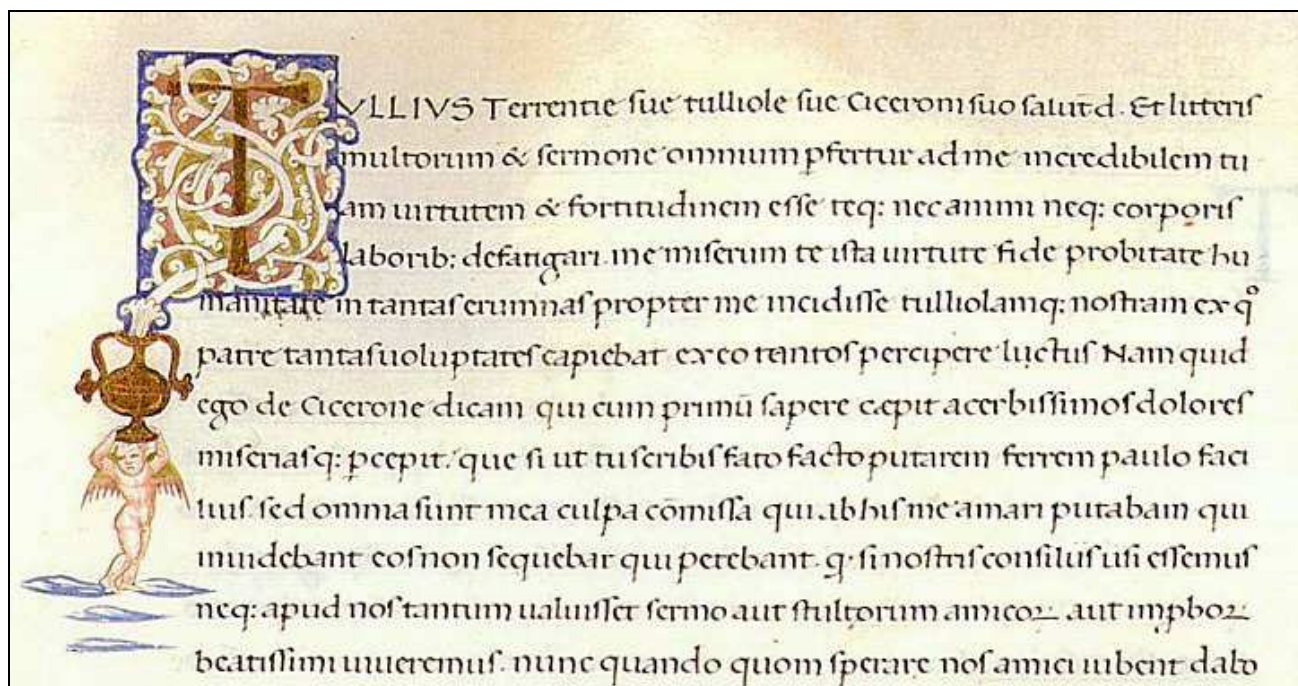 TVLLIVS Terrentie sue tulliole sue Ciceroni suo salut d. Et litteris
multorum & sermone omnium ꝑfertur ad me incredibilem tu
am uirtutem & fortitudinem esse teq: nec animi neq: corporis
laborib: defatigari. me miserum te ista uirtute fide probitate hu
manitate in tantas erumnas propter me incidisse tulliolamq: nostram ex qº
patre tantas uoluptates capiebat ex eo tantos percipere luctus Nam quid
ego de Cicerone dicam qui cum primū sapere cæpit acerbissimos dolores
miserias q: ꝑcepit. que si ut tu scribis fato facto putarem ferrem paulo faci
lius sed omnia sunt mea culpa cōmissa qui ab his me amari putabam qui
inuidebant eos non sequebar qui petebant. ꝙ si nostris consiliis usi essemus
neq: apud nos tantum ualuisset sermo aut stultorum amicoꝝ aut imꝓboꝝ
beatissimi uiueremus. nunc quando quom sperare nos amici iubent dabo